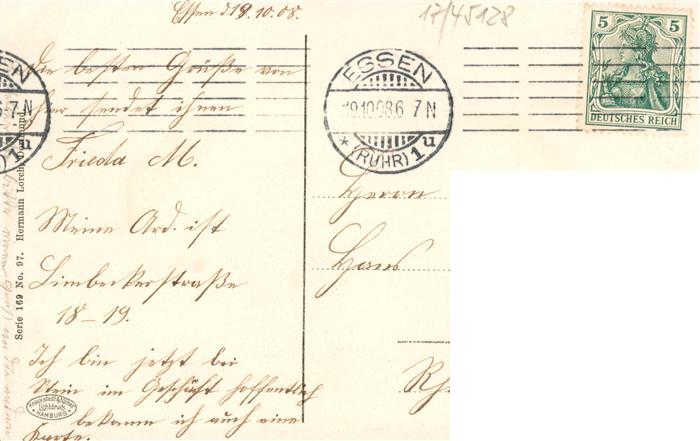 Essen d 19.10.08.
17/45128
Die besten Grüße von
hier sendet ihnen
Frieda M.
Meine Ard. ist
Limbeckerstraße
18-19.
Ich bin jetzt bei
Stein im Geschäft hoffentlich
bekomm ich auch eine
Karte.
ESSEN
19.10.08.6-7N
*(RUHR)1u
5 5
DEUTSCHES REICH
Herrn
Hans
Rh
Serie 169 No. 97. Hermann Lorch, Dortmund.
Knackstedt & Näther
Lichtdruck
HAMBURG